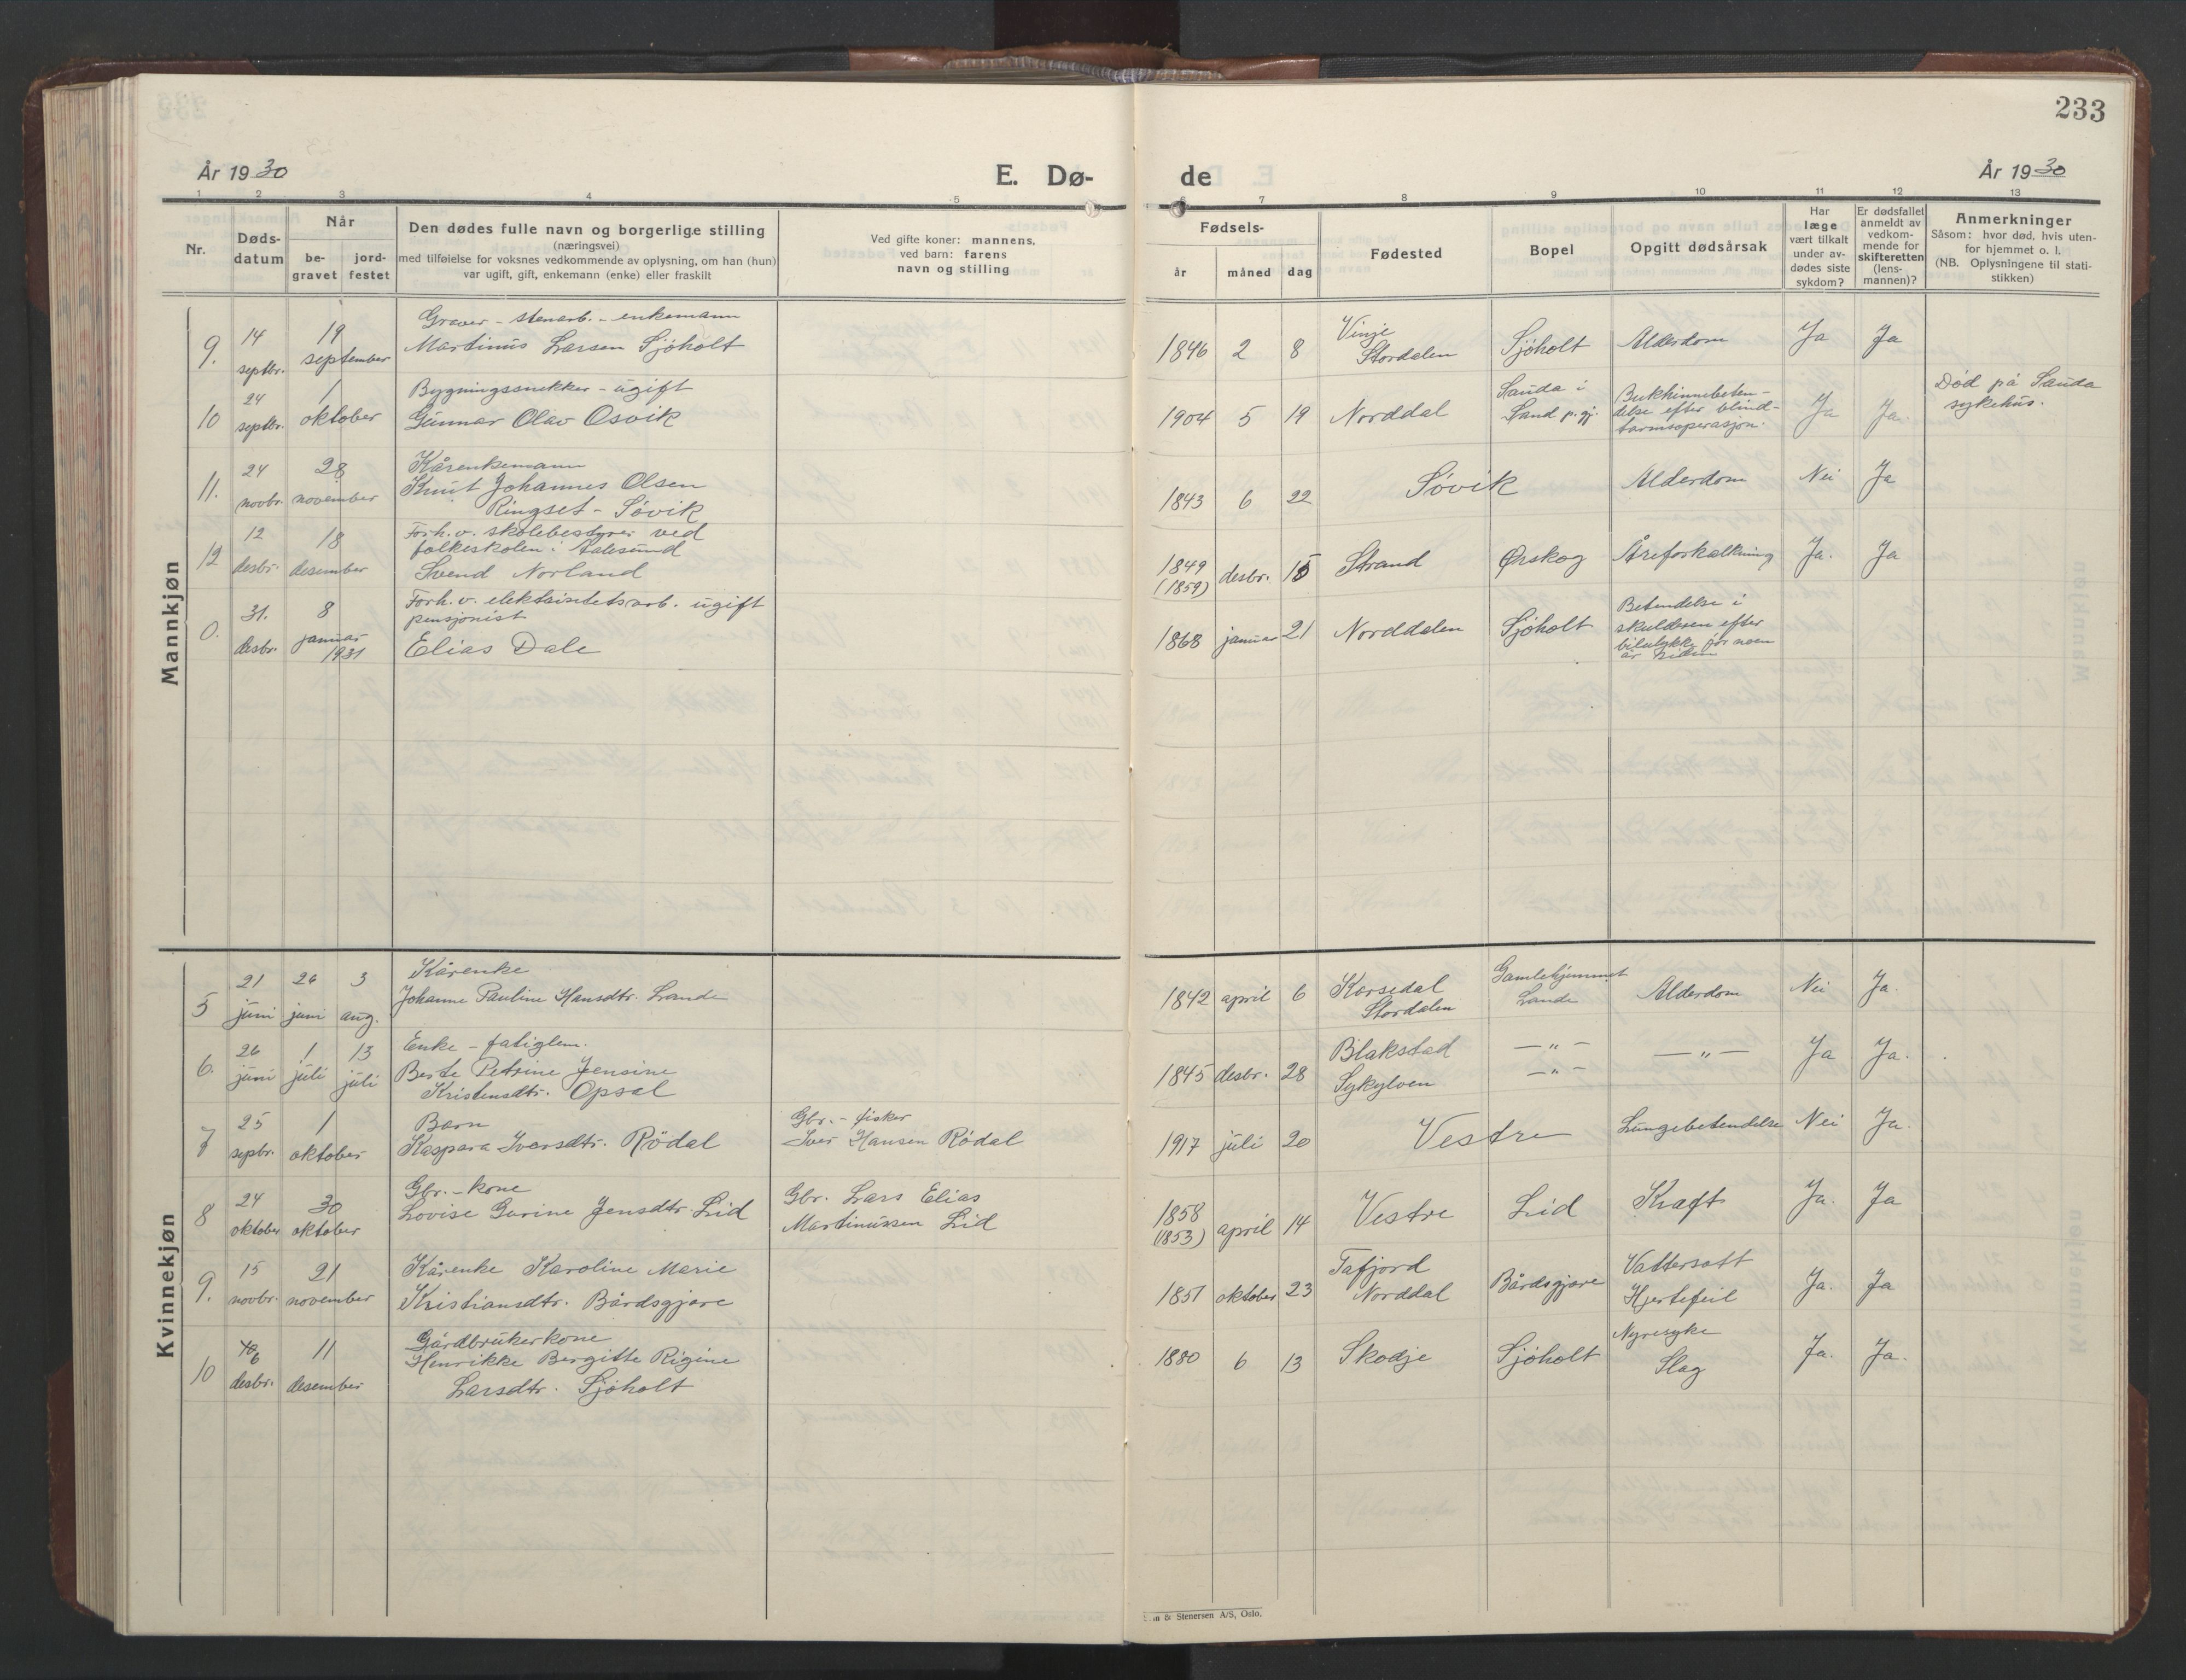 233
År 1930
E. Dø-
de
År 1930
1 2 3 4 5
7 8 9 10 11 12 13
Nr.
Døds-
datum
Når
be-
gravet
jord-
festet
Den dødes fulle navn og borgerlige stilling
(næringsvei)
med tilføielse for voksnes vedkommende av oplysning, om han (hun)
var ugift, gift, enkemann (enke) eller fraskilt
Ved gifte koner: mannens,
ved barn: farens
navn og stilling
Fødsels-
år måned dag
Fødested
Bopel
Opgitt dødsårsak
Har
læge
vært tilkalt
under av-
dødes siste
sykdom?
Er dødsfallet
anmeldt av
vedkom-
mende for
skifteretten
(lens-
mannen)?
Anmerkninger
Såsom: hvor død, hvis uten-
for hjemmet o. l.
(NB. Oplysningene til stati-
stikken)
Mannkjøn
9. 14 septbr. 19 september
Graver - stenarb. - enkemann
Martinus Larsen Sjøholt
1846 2 8 Vinje Stordalen Sjøholt Alderdom Ja Ja
10 24 septbr. 1 oktober
Bygningssnekker - ugift
Gunnar Olav Osvik
1904 5 19 Norddal Sauda i Sand p.gj. Bukhinnebeten-
delse efter blind-
tarmsoperasjon. Ja Ja. Død på Sauda
sykehus.
11. 24 novbr. 28 november
Kårenkemann
Knut Johannes Olsen
Ringset - Søvik
1843 6 22 Søvik Alderdom Nei Ja
12 12 desbr. 18 desember
Forh.v. skolebestyrer ved
folkeskolen i Aalesund
Svend Norland
1849 (1859) desbr. 15 Strand Ørskog Åreforkalkning Ja. Ja
0. 31. desbr. 8 januar 1931
Forh.v. elektrisitetsarb. ugift
pensjonist
Elias Dale
1868 januar 21 Norddalen Sjøholt Betendelse i
skulderen efter
bilulykke for noen
år siden
Kvinnekjøn
5 21 juni 26 juni 3 aug.
Kårenke
Johanne Pauline Hansdtr. Lande
1842 april 6 Korsedal Stordalen Gamlehjemmet Lande Alderdom Nei Ja.
6. 26 juni 1 juli 13 juli
Enke - fatiglem.
Berte Petrine Jensine
Kristensdtr. Opsal
1845 desbr. 28 Blakstad Sykylven —"— —"— —"— Ja Ja.
7 25 sepbr. 1 oktober
Barn
Kaspara Iversdtr. Rødal
Gbr. - fisker
Iver Hansen Rødal
1917 juli 20 Vestre Lungebetendelse Nei Ja.
8 24 oktober 30 oktober
Gbr. - kone
Lovise Gurine Jensdtr. Lid
Gbr. Lars Elias
Martinussen Lid
1858 (1853) april 14 Vestre Lid Kraft Ja. Ja
9. 15 novbr. 21 november
Kårenke Karoline Marie
Kristiansdtr. Bårdsgjære
1851 oktober 23 Tafjord Norddal Bårdsgjære Vattersott
Hjertefeil Ja. Ja
10 6 desbr. 11 desember
Gårdbrukerkone
Henrikke Bergitte Rigine
Larsdtr. Sjøholt
1880 6 13 Skodje Sjøholt Nyresyke
Slag Ja. Ja.
& Stenersen A/S, Oslo.